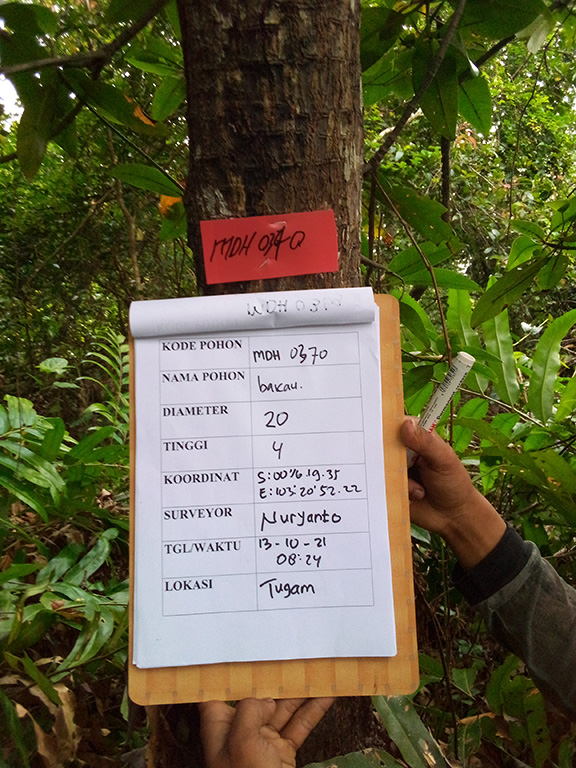 MDH 0370
KODE POHON MDH 0370
NAMA POHON bakau.
DIAMETER 20
TINGGI 4
KOORDINAT
E:103°20'52.22
SURVEYOR Nuryanto
TGL/WAKTU 13-10-21
08:24
LOKASI Tugam